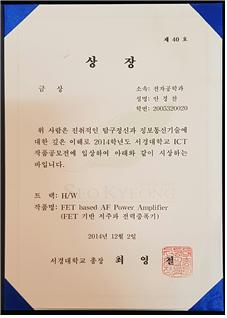 제 40 호
상 장
금 상
소속: 전자공학과
성명: 안경찬
학번: 2005320020
위 사람은 진취적인 탐구정신과 정보통신기술에
대한 깊은 이해로 2014학년도 서경대학교 ICT
작품공모전에 입상하여 아래와 같이 시상하는
바입니다.
트 랙: H/W
작품명: FET based AF Power Amplifier
(FET 기반 저주파 전력증폭기)
2014년 12월 2일
서경대학교 총장 최 영 철